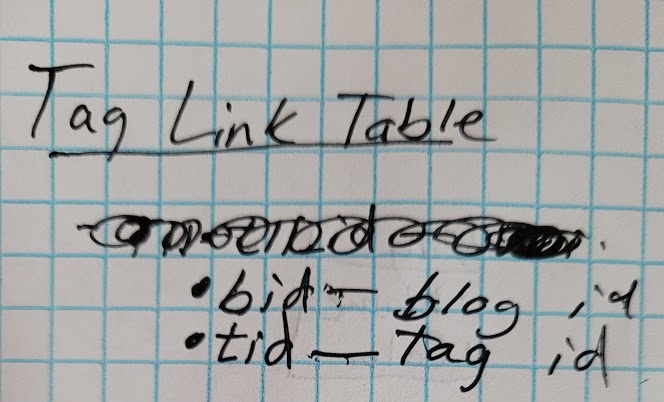 Tag Link Table
• bid — blog id
• tid — tag id